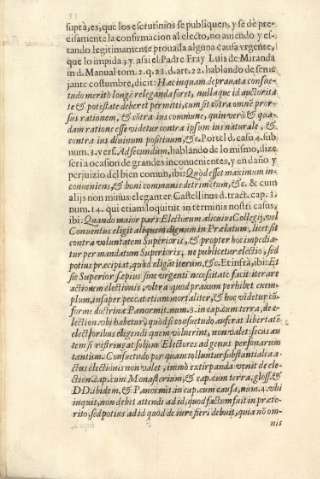 suprà, es, que los escrutinios se publiquen, y se dè pre-
cisamente la confirmacion al electo, no auiendo y es-
tando legitimamente prouada alguna causa vrgente,
que lo impida; y assi el Padre Fray Luis de Miranda
in d. Manual tom. 2. q. 23. d. art. 22. hablando de seme
jante costumbre, dicit: Hæc inquam deprauata consue-
tudo meritò longè releganda foret, nullaque id auctorita
te & potestate deberet permitti, cum sit cõtra omnẽ pror-
sus rationem, & cõtra ius commune, quin verò & qua-
dam ratione esse videtur contra ipsum ius naturale, &
contra ius diuinum positiuum, &c. Portel d. casu 4. sub
num. 3. vers. Ad secundum, hablando de lo mismo, dize
seria ocasion de grandes inconuenientes, y en daño y
perjuizio del bien comun, ibi: Quòd esset maximum in-
conueniens, & boni communis detrimẽtum, &c. & cum
alijs non minus elegant èr Castellinus d. tract. cap. 3.
num. 14. qui etiam loquitur in terminis nostri casus,
ibi: Quando maior pars Electorum alicuius Collegij, vel
Conuentus eligit aliquem dignum in Prælatum, licet sit
contra voluntatem Superioris, & propter hoc impedia-
tur per mandatum Superioris, ne publicetur electio, sed
potius præcipiat, quòd eligãt iterùm, &c. Et infrà, ibi: Et
sic Superior sæpius sine vrgenti necessitate facit iterare
actionem electionis, vltra quod prauum perhibet exem-
plum, insuper peccat etiam mortaliter, & hoc videtur cõ-
forme doctrinæ Panormit. num. 3. in cap. cum terra, de e-
lection. vbi habetur, quòd si cõsuetudo auferat libertatẽ
electoribus eligendi quem voluerint, non valet sicut au-
tem si restringat solùm Electores ad genus personarum
tantum. Consuetudo per quam tolluntur substantialia a-
ctus electionis non valet, immò extirpanda venit de ele-
ction. cap. cum Monasterium, & cap. cum terra, gloss. &
DD. ibidem, & Panormit. in cap. cum causa, num. 2. vbi
inquit, non debet attendi ad id, quod factum fuit in præte-
rito, sed potius ad id quod de iure fieri debuit, quia nõ om-
nis